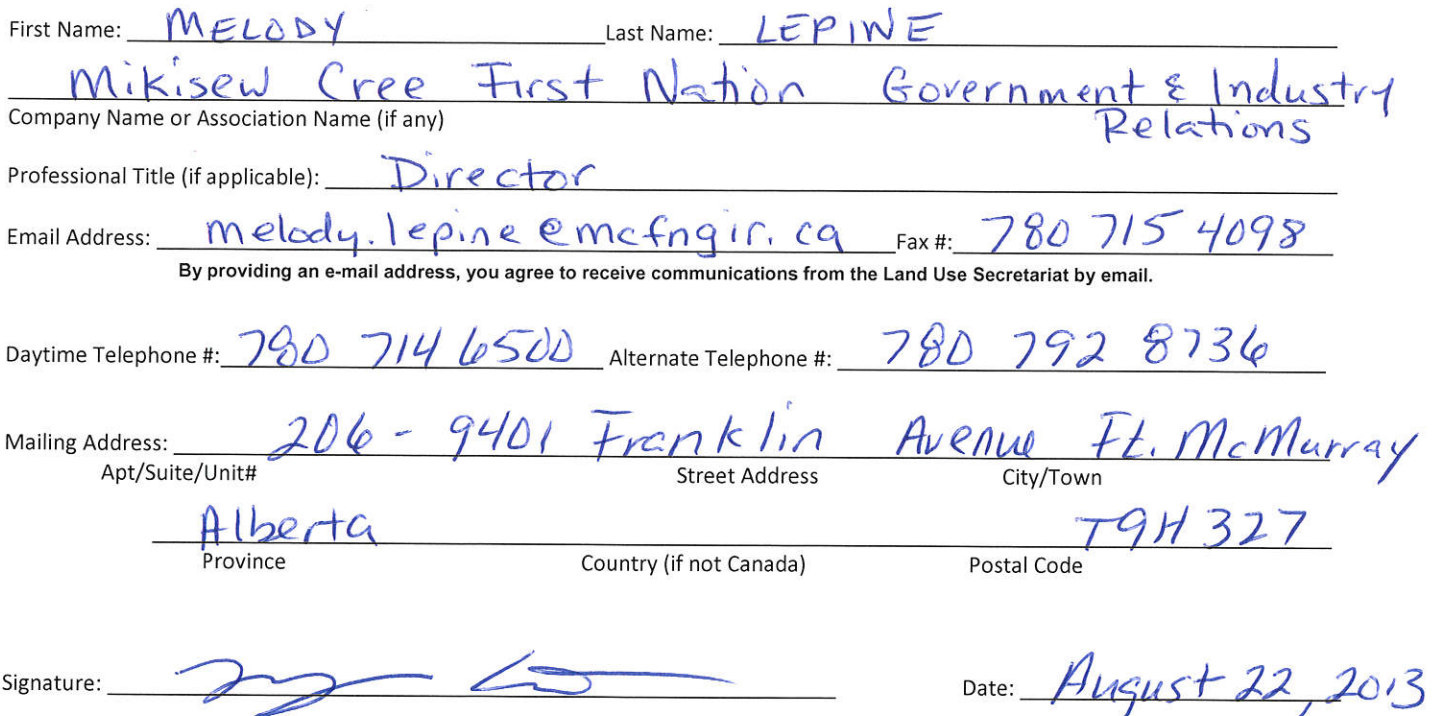 First Name: MELODY Last Name: LEPINE
Mikisew Cree First Nation Government & Industry
Company Name or Association Name (if any) Relations
Professional Title (if applicable): Director
Email Address: melody.lepine@mcfngir.ca Fax #: 780 715 4098
By providing an e-mail address, you agree to receive communications from the Land Use Secretariat by email.
Daytime Telephone #: 780 714 6500 Alternate Telephone #: 780 792 8736
Mailing Address: 206 - 9401 Franklin Avenue Ft. McMurray
Apt/Suite/Unit# Street Address City/Town
Alberta T9H 3Z7
Province Country (if not Canada) Postal Code
Signature: Date: August 22, 2013